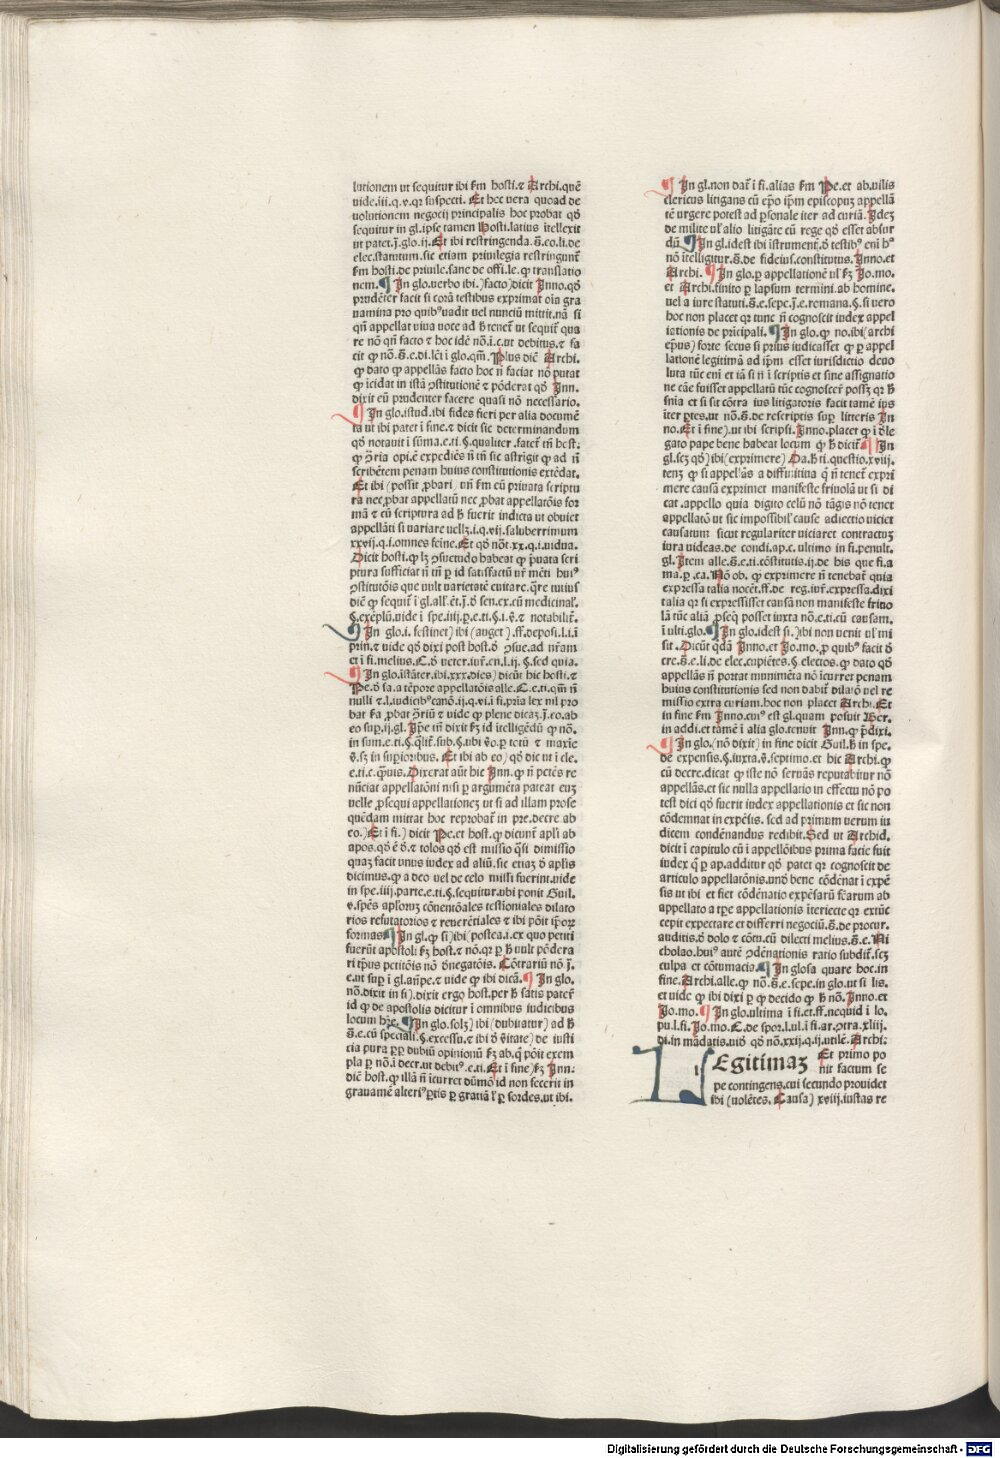 lutionem ut sequitur ibi ẜm hosti.⁊ Archi.quẽ
uide.iii.q.v.qꝛ suspecti. Et hec vera quoad de
uolutionem negocij principalis hoc probat qđ
sequitur in gl.ipse tamen Hosti.latius ĩtellexit
ut patet.j̃.glo.ij.Et ibi restringenda.s̃.eo.li.de
elec.statutum.sic etiam priuilegia restringunť
ẜm hosti.de priuile.sane de offi.le.ꝙ translatio
nem.¶ In glo.uerbo ibi.(facto)dicit Inno.qđ
prudẽter facit si corã testibus exprimat oĩa gra
uamina pro quibꝰ uadit vel nunciũ mittit.nã si
qñ appellat uiua uoce ad ħ teneť ut sequiť qua
re nõ qñ facto ⁊ hoc idẽ nõ.ĩ.c.ut debitus.⁊ fa
cit ꝙ nõ.s̃.e.di.lẽi ĩ glo.qm̃.Plus diẽ Archi.
ꝙ dato ꝙ appellãs facto hoc ñ faciat nõ putat
ꝙ ĩcidat in istã ꝯstitutionẽ ⁊ põderat qđ Inn.
dixit eũ prudenter facere quasi nõ necessario.
¶ In glo.istud.ibi fides fieri per alia documẽ
ta ut ibi patet ĩ fine.⁊ dicit sic determinandum
qđ notauit ĩ sũma.e.ti.§.qualiter.fateť tñ host.
ꝙ ꝯ̃ria opi.ẽ expediẽs ñ tñ sic astrigit ꝙ ad ñ
scribẽtem penam huius constitutionis extẽdat.
Et ibi (possit ꝓbari) uñ ẜm cũ priuata scriptu
ra nec ꝓbat appellatũ nec ꝓbat appellatõis for
mã ⁊ cũ scriptura ad ħ fuerit indicta ut obuiet
appellãti si uariare uellꝫ.i.q.vij.saluberrimum
xxvij.q.i.omnes feine.Et qđ nõt.xx.q.i.uidua.
Dicit hosti.ꝙ lꝫ ꝯsuetudo habeat ꝙ puata scri
ptura sufficiat ñ tñ ꝑ id satisfactũ uř mẽti huiꝰ
ꝯstitutõis que uult varietatẽ euitare.q̃re tutius
diẽ ꝙ sequiť ĩ gl.all̃.ẽt.j̃.đ sen.ex.cũ medicinaľ.
§.exẽplũ.uide ĩ spe.iiij.ꝑ.e.ti.§.i.v̾.⁊ notabiliť.
¶ In glo.i. festinet) ibi (auget).ff.deposi.l.i.ĩ
prin.⁊ uide qđ dixi post host.đ ꝯsue.ad nr̃am
et ĩ fi.melius.C.đ veter.iuř.en.l.ij.§.sed quia.
¶ In glo.ĩstãter.ibi.xxx.dies) dicũt hic hosti.⁊
Pe.đ sa.a tẽpore appellatõis alle.C.e.ti.qm̃ ñ
nulli ⁊.l.iudicibꝰ canõ.ij.q.vi.ĩ fi.pr̃ia lex nil pro
bat ẜa ꝓbat ꝯ̃riũ ⁊ uide ꝙ plene dicaꝫ.j̃.eo.ab
eo sup.ij.gl. Ip̃e tñ dixit ẜꝫ id ĩtelligẽdũ ꝙ nõ.
in sum.e.ti.§.qliť.sub.§.ubi v̾o.ꝑ totũ ⁊ maxie
v̾.sꝫ in supioribus. Et ibi ab eo) qđ dic ut ĩ cle.
e.ti.c.q̃uis.Dixerat aũt hic Inn.ꝙ ñ petẽs re
nũciat appellatõni nisi ꝑ argumẽta pateat euꝫ
uelle ꝓsequi appellationeꝫ ut si ad illam prose
quẽdam mittat hoc reprobať in pre.decre ab
eo.)Et ĩ fi.) dicit Pe.et host.ꝙ dicunť apľi ab
apos.qđ ẽ đ.⁊ tolos qđ est missio q̃si dimissio
quaꝫ facit unus iudex ad aliũ.sic etiaꝫ đ apľis
dicimus.ꝙ a deo uel de celo missi fuerint.uide
in spe.iiij.parte.e.ti.§.sequitur.ubi ponit Guil.
v̾.spẽs apľoruꝫ cõuentõales testioniales dilato
rios refutatorios ⁊ reuerẽtiales ⁊ ibi põit ip̃oꝝ
formas¶ In gl.ꝙ si)ibi (postea.i.ex quo petiti
fuerũt apostoli ẜꝫ host.⁊ nõ.qꝛ ꝑ ħ uult põdera
ri tp̃us petitõis nõ đnegatõis. Cõtrariũ nõ j̃.
e.ut sup ĩ gl.añpe.⁊ uide ꝙ ibi dicã.¶ In glo.
nõ.dixit in fi).dixit ergo host.per ħ satis pateť
id ꝙ de apostolis dicitur ĩ omnibus iudicibus
locum hr̃e.¶ In glo.solꝫ) ibi (dubitatur) ad ħ
s̃.e.cũ speciali.§.excessu.⁊ ibi đ v̾itate) de iusti
cia pura ꝑꝓ dubiũ opinionũ ẜꝫ ab.ꝙ põit exem
pla ꝑ nõ.ĩ decr.ut debitꝰ.e.ti.Et ĩ fine)ẜꝫ Inn:
diẽ host.ꝙ illã ñ ĩcurret dũmõ id non fecerit in
grauamẽ alteriꝰ ꝑtis ꝑ gratiã ľ ꝑ sordes.ut ibi.
¶ In gl.non dať ĩ fi.alias ẜm Pe.et ab.uilis
clericus litigans cũ ep̃o ip̃m episcopuꝫ appellã
tẽ urgere potest ad ꝑsonale iter ad curiã. Ideꝫ
de milite uľ alio litigãte cũ rege qđ esset absur
dũ.¶ In gl.idest ibi ĩstrumenť.đ testibꝰ eni ħᵃ
nõ ĩtelligiťur.s̃.de fideius.constitutus.Inno.et
Archi.¶ In glo.ꝑ appellationẽ uľ ẜꝫ Jo.mo.
et Archi.finito ꝑ lapsum termini.ab homine.
uel a iure statuti.s̃.e.sepe.j̃.e.romana.§.si vero
hoc non placet qꝛ tunc ñ cognoscit iudex appel
lationis de pricipali.¶ In glo.ꝙ no.ibi(archi
ep̃us) forte secus si prius iudicasset ꝙ ꝑ appel
lationẽ legitimã ad ip̃m esset iurisdictio deuo
luta tũc eni et iã si ñ ĩ scriptis et sine assignatio
ne cãe fuisset appellatũ tũc cognosceř possꝫ qꝛ ħ
snia et si sit cõtra ius litigatoris facit tamẽ ius
iter ꝑtes.ut nõ.s̃.de rescriptis sup litteris In
no.Et ĩ fine).ut ibi scripsi.Inno.placet ꝙ ĩ đle
gato pape bene habeat locum ꝙ ħ diciť¶ In
gl.scꝫ qđ)ibi(exprimere) Da.ħ ti.questio.xviij.
tenꝫ ꝙ si appeľas a diffinitiua q̃ ñ teneť expri
mere causã exprimet manifeste friuolã ut si di
cat.appello quia digito celũ nõ tãgis nõ tenet
appellatõ ut sic impossibiľ cause adiectio uiciet
causatum sicut regulariter uiciaret contractus
iura uideas.de condi.ap.c. ultimo in fi.penult.
gl.Item alle.s̃.e.ti.cõstitutis.ij.de his que fi.a
ma.ꝑ.ca. Nõ ob. ꝙ exprimere ñ tenebať quia
expressa talia nocẽt.ff.de reg.iuř.expressa.dixi
talia qꝛ si expressisset causã non manifeste friuo
lã tũc aliã ꝓseq̃ posset iuxta nõ.e.ti.cũ causam.
ĩ ulti.glo.¶ In glo.idest si.)ibi non uenit uľ mi
sit.Dicũt qdã Inno.et Jo.mo.ꝓ quibꝰ facit đ
cre.s̃.e.li.de elec.cupiẽtes.§.electos.ꝙ dato qđ
appellãs ñ portat munimẽta nõ ĩcurret penam
huius constitutionis sed non dabiť dilatõ uel re
missio extra curiam.hoc non placet Archi.Et
in fine ẜm Inno.cuiꝰ est gl.quam posuit Ber.
in addi.et tamẽ ĩ alia glo.tenuit Inn.ꝙ p̃dixi.
¶ In glo.(nõ dixit) in fine dicit Guil.ħ in spe.
de expensis.§.iuxta.v̾.septimo.et hic Archi.ꝙ
cũ decre.dicat ꝙ iste nõ seruãs reputabitur nõ
appellãs.et sic nulla appellatio in effectu nõ po
test dici qđ fuerit iudex appellationis et sic non
cõdemnat in expẽsis. sed ad primum uerum iu
dicem condẽnandus redibit.Sed ut Archid.
dicit ĩ capitulo cũ ĩ appellõibus prima facie fuit
iudex q̃ ꝑ ap.additur qđ patet qꝛ cognoscit de
articulo appellatõnis.unđ bene cõdẽnat ĩ expẽ
sis ut ibi et fiet cõdẽnatio expẽsarũ fc̃arum ab
appellato a tp̃e appellationis ĩteriecte qꝛ extũc
cepit expectare et differri negociũ.s̃.de procur.
auditis.đ dolo ⁊ cõtu.cũ dilecti melius.s̃.e. Ni
cholao.huiꝰ autẽ ꝯdẽnationis ratio subdiť.scꝫ
culpa et cõtumacia.¶ In glosa quare hoc.in
fine.Archi.alle.ꝙ nõ.s̃.e.sepe.in glo.ut si lis.
et uide ꝙ ibi dixi ꝑ ꝙ decido ꝙ ħ nõ. Inno.et
Jo.mo.¶ In glo.ultima ĩ fi.et.ff.nequid ĩ lo.
pu.l.fi.Jo.mo.C.de spor.l.ul.ĩ fi.ar.ꝯtra.xliij.
di.in mãdatis.uiđ qđ nõ.xxij.q.ij.utilẽ.Archi:
LEgitimaꝫ Et primo po
nit factum se
pe contingens.cui secundo prouidet
ibi (uolẽtes. Causa) xviij.iustas re
Digitalisierung gefördert durch die Deutsche Forschungsgemeinschaft - DFG